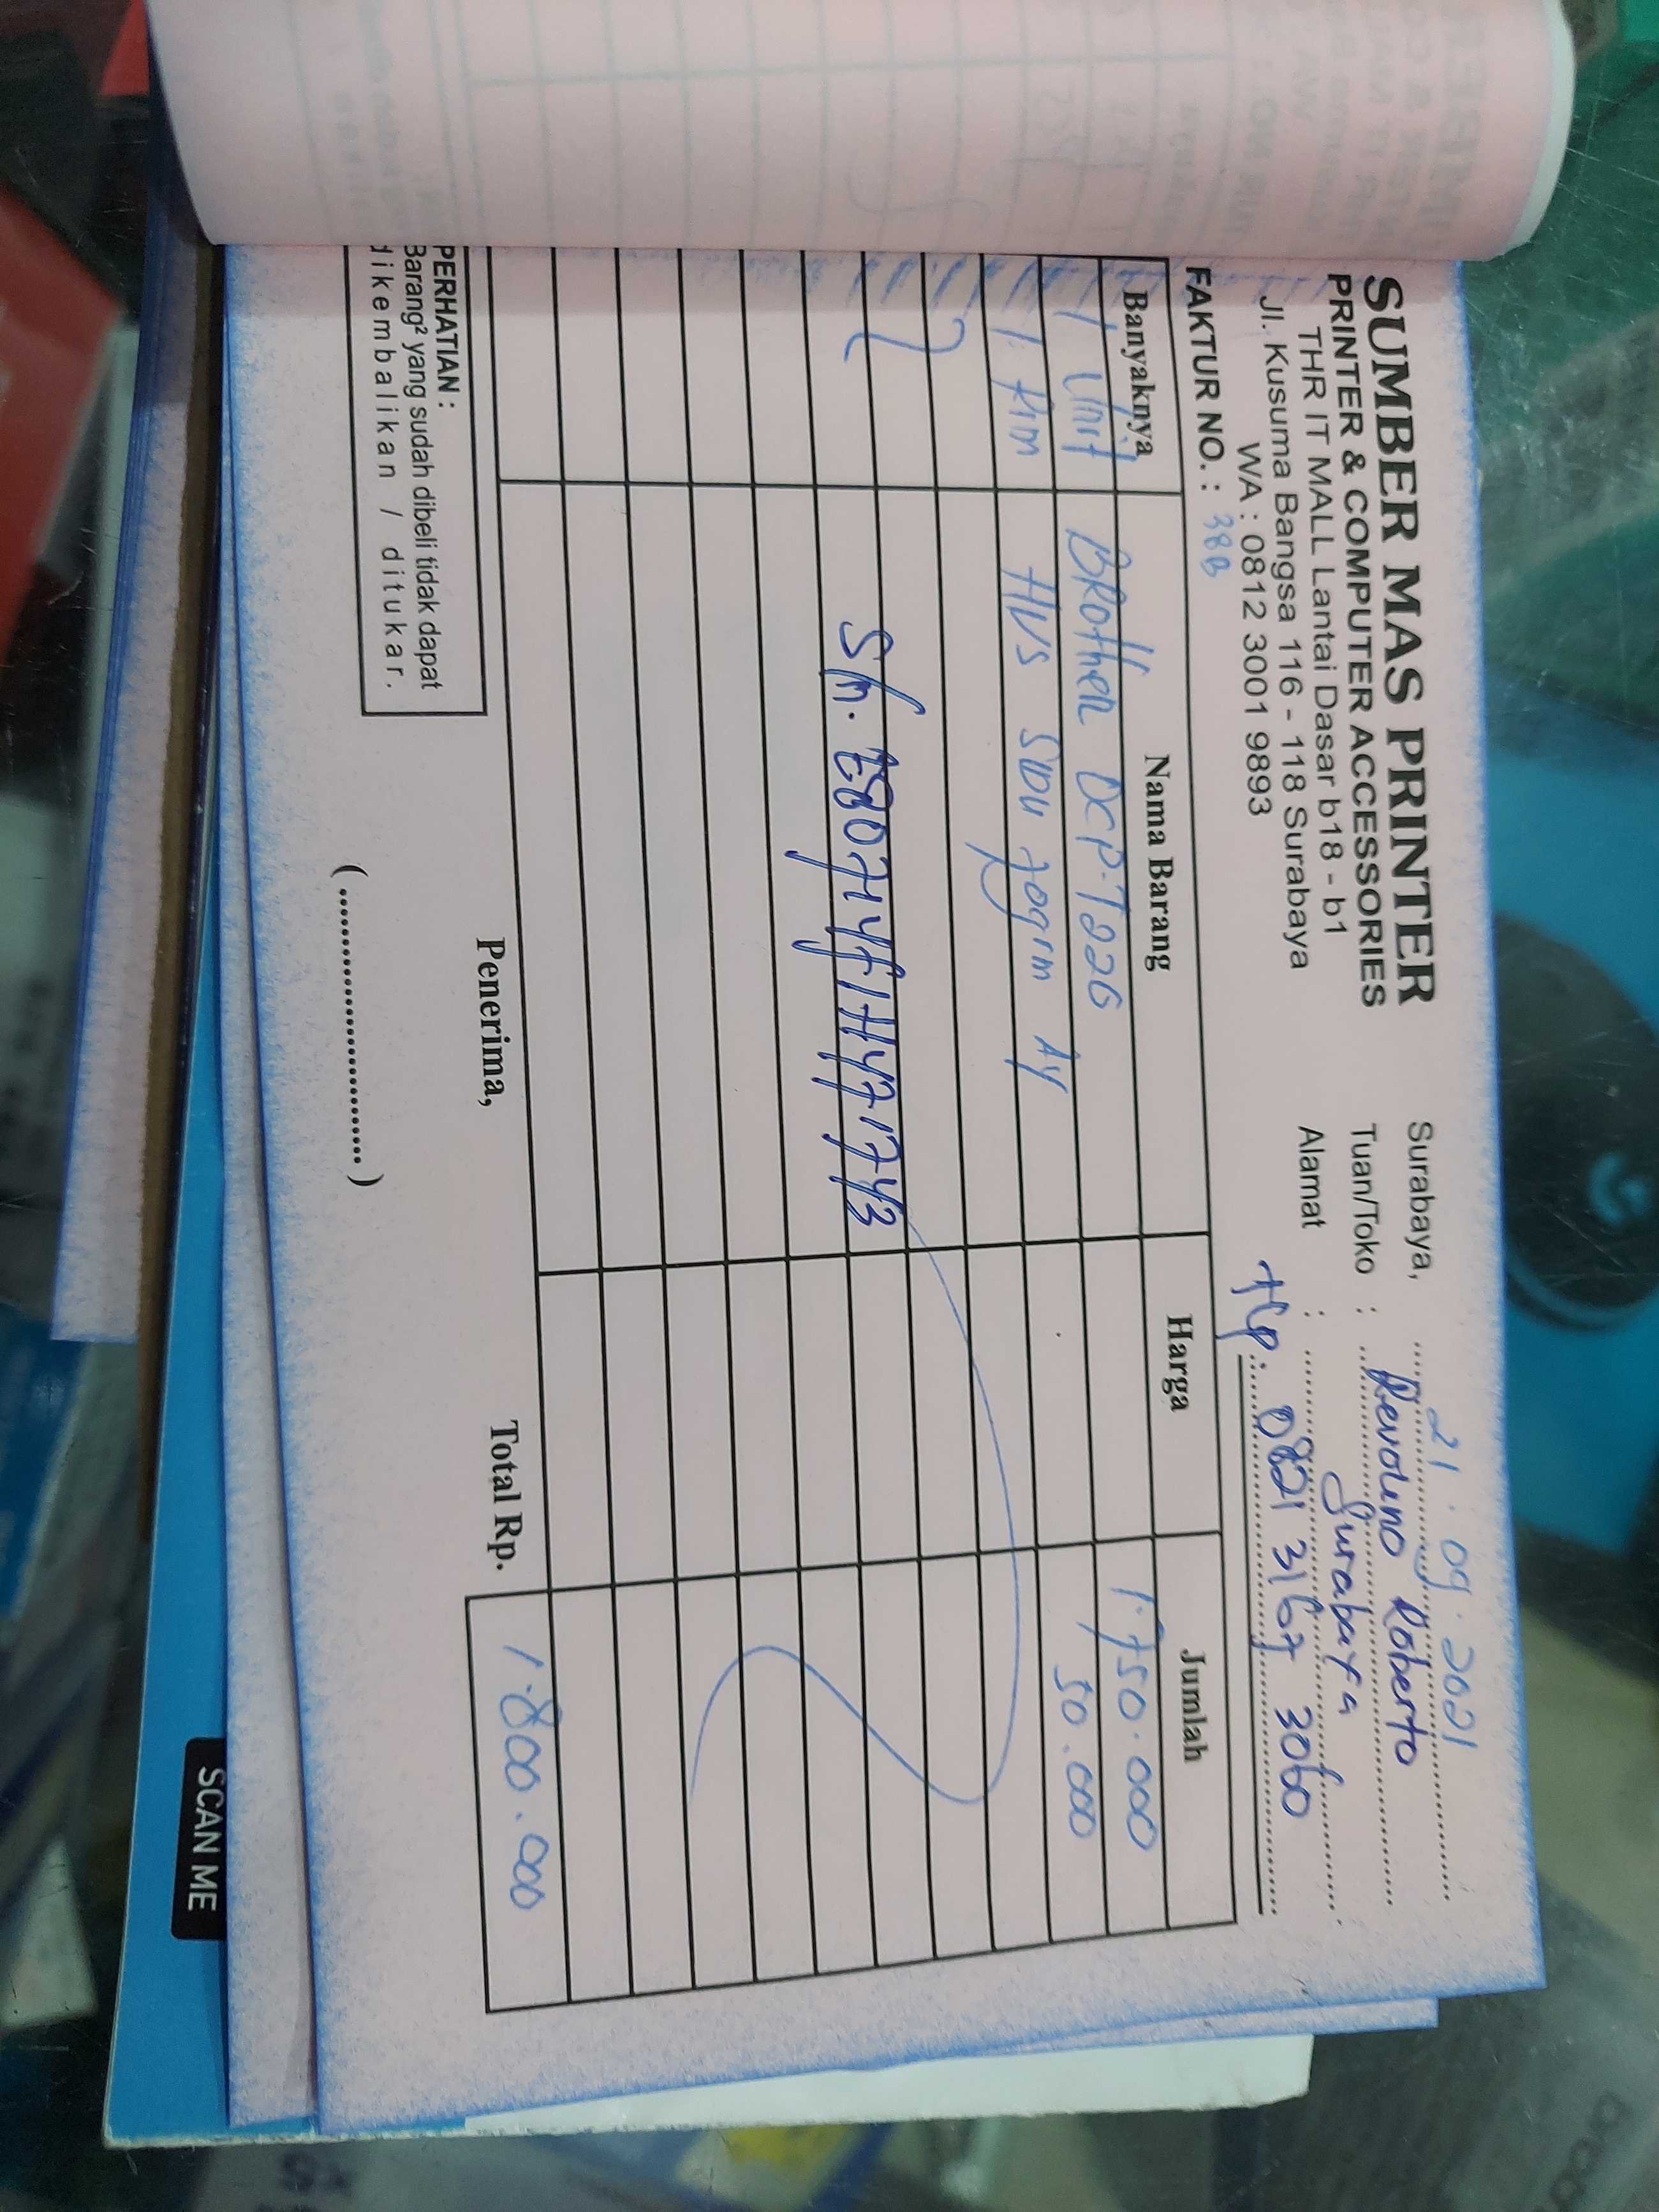 SUMBER MAS PRINTER
PRINTER & COMPUTER ACCESSORIES
THR IT MALL Lantai Dasar b18 - b1
Jl. Kusuma Bangsa 116 - 118 Surabaya
WA : 0812 3001 9893
Surabaya, 21 . 09 . 2021
Tuan/Toko : Revolino Roberto
Alamat : Surabaya
tlp. 0821 3167 3060
FAKTUR NO. : 38B
Banyaknya Nama Barang Harga Jumlah
1 Unit BROTHER DCP-T226 1.750.000
1 Rim HVS SDU 70grm A4 50.000
S/n.
PERHATIAN :
Barang² yang sudah dibeli tidak dapat
dikembalikan / ditukar.
Penerima,
(........................)
Total Rp. 1.800.000
SCAN ME